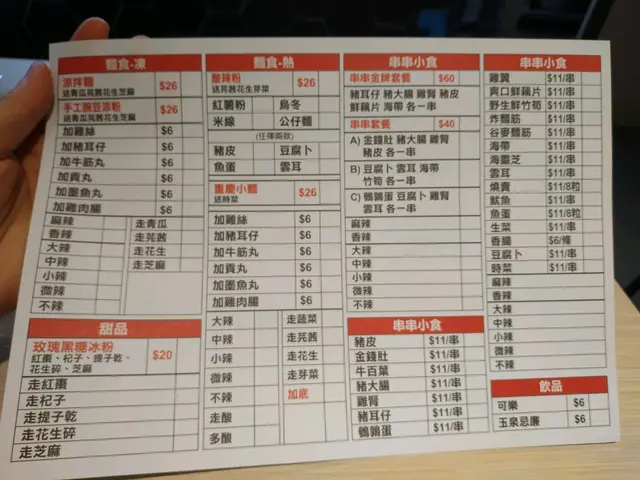 麵食-凍
涼拌麵 $26
送青瓜芫茜花生芝麻
手工豌豆涼粉 $26
送青瓜芫茜花生芝麻
加雞絲 $6
加豬耳仔 $6
加牛筋丸 $6
加貢丸 $6
加墨魚丸 $6
加雞肉腸 $6
麻辣 走青瓜
香辣 走芫茜
大辣 走花生
中辣 走芝麻
小辣
微辣
不辣
甜品
玫瑰黑糖冰粉 $20
紅棗、杞子、提子乾、
花生碎、芝麻
走紅棗
走杞子
走提子乾
走花生碎
走芝麻
麵食-熱
酸辣粉 $26
送芫茜花生芽菜
紅薯粉 烏冬
米線 公仔麵
(任擇兩款)
豬皮 豆腐卜
魚蛋 雲耳
重慶小麵 $26
送時菜
加雞絲 $6
加豬耳仔 $6
加牛筋丸 $6
加貢丸 $6
加墨魚丸 $6
加雞肉腸 $6
大辣 走蔬菜
中辣 走芫茜
小辣 走花生
微辣 走芽菜
不辣 加底
走酸
多酸
串串小食
串串金牌套餐 $60
豬耳仔 豬大腸 雞腎 豬皮
鮮藕片 海帶 各一串
串串套餐 $40
A) 金錢肚 豬大腸 雞腎
豬皮 各一串
B) 豆腐卜 雲耳 海帶
竹筍 各一串
C) 鵪鶉蛋 豆腐卜 雞腎
雲耳 各一串
麻辣
香辣
大辣
中辣
小辣
微辣
不辣
串串小食
豬皮 $11/串
金錢肚 $11/串
牛百葉 $11/串
豬大腸 $11/串
雞腎 $11/串
豬耳仔 $11/串
鵪鶉蛋 $11/串
串串小食
雞翼 $11/串
爽口鮮藕片 $11/串
野生鮮竹筍 $11/串
炸麵筋 $11/串
谷麥麵筋 $11/串
海帶 $11/串
海靈芝 $11/串
雲耳 $11/串
燒賣 $11/8粒
魷魚 $11/串
魚蛋 $11/8粒
生菜 $11/串
香腸 $6/條
豆腐卜 $11/串
時菜 $11/串
麻辣
香辣
大辣
中辣
小辣
微辣
不辣
飲品
可樂 $6
玉泉忌廉 $6